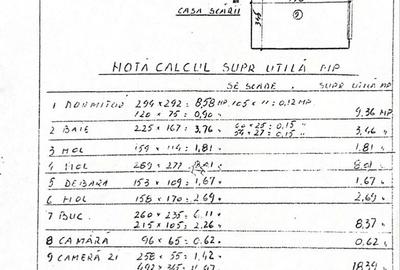 CASA SCĂRII
NOTĂ CALCUL SUPR UTILĂ MP
SE SCADE. SUPR UTILĂ MP
1 DORMITOR 294 × 292 = 8,58 MP 105 × 11 = 0,12 MP
120 × 75 = 0,90 9,36 MP
2 BAIE 225 × 167 = 3,76 60 × 25 = 0,15 3,46
54 × 27 = 0,15
3 HOL 159 × 114 = 1,81 1,81
4 HOL 289 × 277
5 DEBARA 153 × 109 = 1,67 1,67
6 HOL 158 × 170 = 2,69 2,69
7 BUC. 260 × 235 = 6.11
215 × 105 = 2.26 8,37
8 CAMĂRĂ 96 × 65 = 0.62 0,62
9 CAMERĂ ZI 258 × 55 = 1.42
18,39